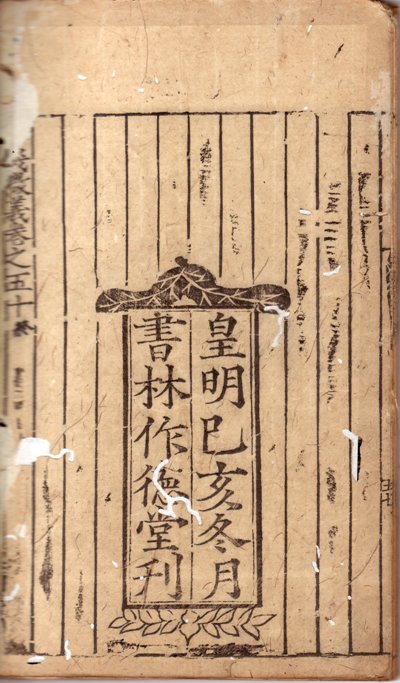 皇明己亥冬月
書林作德堂刊
義卷之五十終